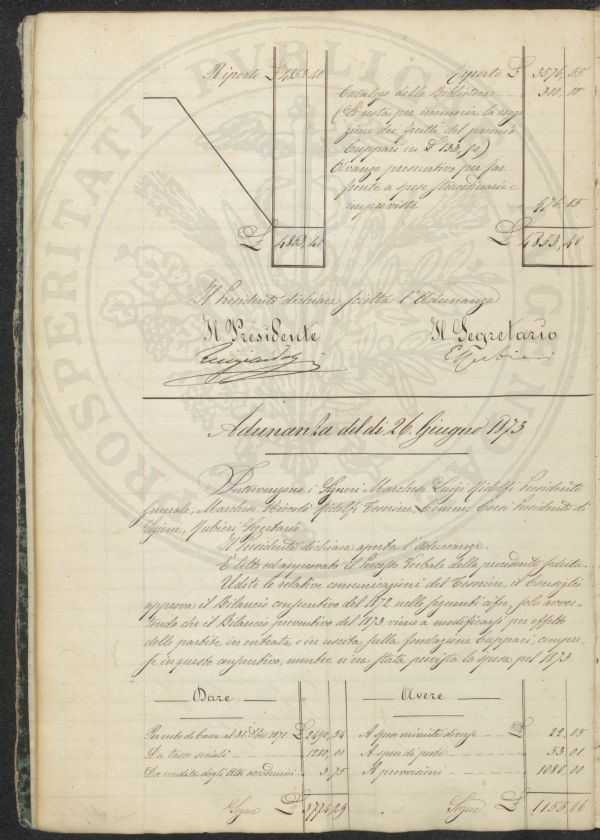 Riporto £ 4853,40
Riporto £ 3576,55
Catalogo della Biblioteca 300,00
(Si nota per memoria la
zione dei frutti del premio
Cuppari in £ 133,50)
Avanzo presuntivo per far
fronte a spese straordinarie e
impreviste 976,85
£ 4853,40
£ 4853,40
Il Presidente dichiara sciolta l'Adunanza
Il Presidente
Il Segretario
Luigi Ridolfi
E Rubieri
Adunanza del dì 26. Giugno 1873
Intervengono i Signori Marchese Luigi Ridolfi Presidente
generale, Marchese Niccolò Ridolfi Tesoriere, Presidente di
Sezione, Rubieri Segretario.
Il Presidente dichiara aperta l'Adunanza.
È letto ed approvato il Processo Verbale della precedente seduta.
Udite le relative comunicazioni del Tesoriere, il Consiglio
approva il Bilancio consuntivo del 1872 nelle seguenti cifre, solo avver-
tendo che il Bilancio preventivo del 1873 viene a modificarsi per effetto
delle partite in entrata e in uscita sulla fondazione Cuppari, compre-
se in questo consuntivo, mentre n'era stata prevista la spesa pel 1873
Dare
Avere
Per resto di Cassa al 31. Xbre 1871 £ 2490,54
Da tasse sociali 1280,00
Da vendita degli Atti accademici 3,75
Segue £ 3774,29
A spese minute diverse £ 22,05
A spese di posta 53,01
A provvisioni 1080,00
Segue £ 1155,06